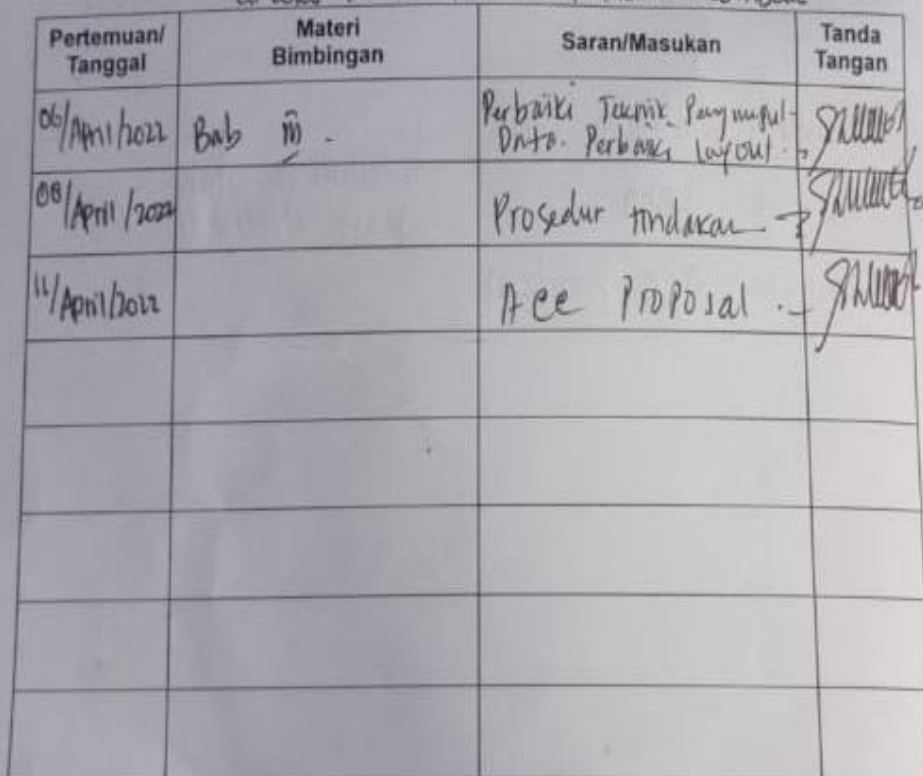 Pertemuan/ Tanggal
Materi Bimbingan
Saran/Masukan
Tanda Tangan
06/April/2022
Bab III -
Perbaiki Teknik Pengumpul-
Data. Perbaiki layout.
08/April/2022
Prosedur tindakan
11/April/2022
Acc Proposal -